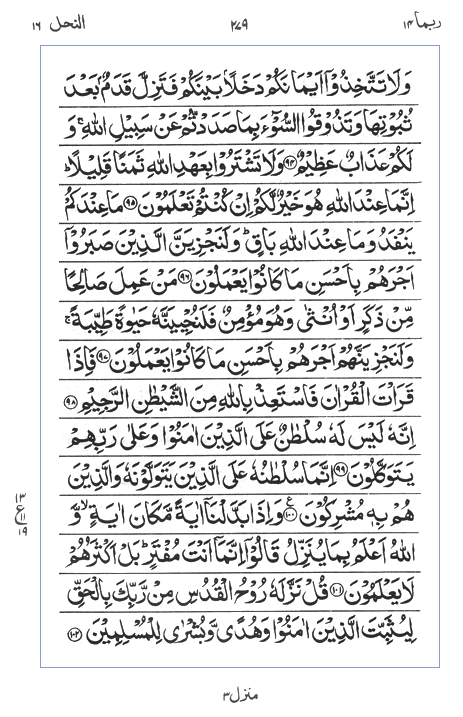 ربما ١٤ ٢٧٩ النحل ١٦
وَلَا تَتَّخِذُوْٓا اَيْمَانَكُمْ دَخَلًاۢ بَيْنَكُمْ فَتَزِلَّ قَدَمٌۢ بَعْدَ
ثُبُوْتِهَا وَتَذُوْقُوا السُّوْٓءَ بِمَا صَدَدْتُّمْ عَنْ سَبِيْلِ اللّٰهِ ۚ وَ
لَكُمْ عَذَابٌ عَظِيْمٌ ﴿٩٤﴾ وَلَا تَشْتَرُوْا بِعَهْدِ اللّٰهِ ثَمَنًا قَلِيْلًا ؕ
اِنَّمَا عِنْدَ اللّٰهِ هُوَ خَيْرٌ لَّكُمْ اِنْ كُنْتُمْ تَعْلَمُوْنَ ﴿٩٥﴾ مَا عِنْدَكُمْ
يَنْفَدُ وَمَا عِنْدَ اللّٰهِ بَاقٍ ؕ وَلَنَجْزِيَنَّ الَّذِيْنَ صَبَرُوْٓا
اَجْرَهُمْ بِاَحْسَنِ مَا كَانُوْا يَعْمَلُوْنَ ﴿٩٦﴾ مَنْ عَمِلَ صَالِحًا
مِّنْ ذَكَرٍ اَوْ اُنْثٰى وَهُوَ مُؤْمِنٌ فَلَنُحْيِيَنَّهٗ حَيٰوةً طَيِّبَةً ۚ
وَلَنَجْزِيَنَّهُمْ اَجْرَهُمْ بِاَحْسَنِ مَا كَانُوْا يَعْمَلُوْنَ ﴿٩٧﴾ فَاِذَا
قَرَاْتَ الْقُرْاٰنَ فَاسْتَعِذْ بِاللّٰهِ مِنَ الشَّيْطٰنِ الرَّجِيْمِ ﴿٩٨﴾
اِنَّهٗ لَيْسَ لَهٗ سُلْطٰنٌ عَلَى الَّذِيْنَ اٰمَنُوْا وَعَلٰى رَبِّهِمْ
يَتَوَكَّلُوْنَ ﴿٩٩﴾ اِنَّمَا سُلْطٰنُهٗ عَلَى الَّذِيْنَ يَتَوَلَّوْنَهٗ وَالَّذِيْنَ
هُمْ بِهٖ مُشْرِكُوْنَ ﴿١٠٠﴾ ع وَاِذَا بَدَّلْنَآ اٰيَةً مَّكَانَ اٰيَةٍ ۙ وَّ
١٣
ع ١١
١٩
اللّٰهُ اَعْلَمُ بِمَا يُنَزِّلُ قَالُوْٓا اِنَّمَآ اَنْتَ مُفْتَرٍ ؕ بَلْ اَكْثَرُهُمْ
لَا يَعْلَمُوْنَ ﴿١٠١﴾ قُلْ نَزَّلَهٗ رُوْحُ الْقُدُسِ مِنْ رَّبِّكَ بِالْحَقِّ
لِيُثَبِّتَ الَّذِيْنَ اٰمَنُوْا وَهُدًى وَّبُشْرٰى لِلْمُسْلِمِيْنَ ﴿١٠٢﴾
منزل ٣